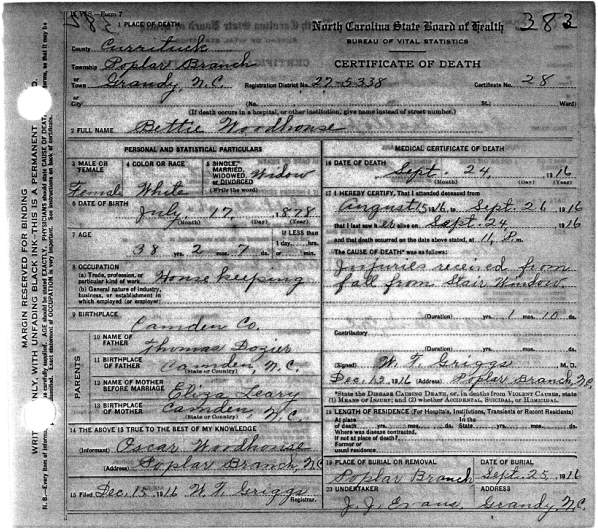 N. C. V. S.—Form 7
383
North Carolina State Board of Health 383
BUREAU OF VITAL STATISTICS
CERTIFICATE OF DEATH
1 PLACE OF DEATH
County Currituck
Township Poplar Branch
or
Town Grandy, N.C. Registration District No. 27-5338 Certificate No. 28
or
City (No. St.; Ward)
(If death occurs in a hospital, or other institution, give name instead of street number.)
2 FULL NAME Bettie Woodhouse
PERSONAL AND STATISTICAL PARTICULARS
3 MALE OR FEMALE Female
4 COLOR OR RACE White
5 SINGLE, MARRIED, WIDOWED, OR DIVORCED (Write the word) Widow
6 DATE OF BIRTH
July 17, 1878
(Month) (Day) (Year)
7 AGE
38 yrs. 2 mos. 7 ds.
If LESS than 1 day, hrs. or min.
8 OCCUPATION
(a) Trade, profession, or particular kind of work
House keeping
(b) General nature of industry, business, or establishment in which employed (or employer)
9 BIRTHPLACE
Camden Co.
PARENTS
10 NAME OF FATHER Thomas Dozier
11 BIRTHPLACE OF FATHER (State or Country) Camden, N.C.
12 NAME OF MOTHER BEFORE MARRIAGE Eliza Leary
13 BIRTHPLACE OF MOTHER (State or Country) Camden, N.C.
14 THE ABOVE IS TRUE TO THE BEST OF MY KNOWLEDGE
(Informant) Oscar Woodhouse
(Address) Poplar Branch, N.C.
15 Filed Dec. 15, 1916 W. T. Griggs
Registrar.
MEDICAL CERTIFICATE OF DEATH
16 DATE OF DEATH
Sept. 24, 1916
(Month) (Day) (Year)
17 I HEREBY CERTIFY, That I attended deceased from
August 15 1916, to Sept. 26 1916
that I last saw her alive on Sept. 24 1916
and that death occurred on the date above stated, at 11, P. m.
The CAUSE OF DEATH* was as follows:
Injuries received from
fall from Stair Window.
(Duration) yrs. 1 mos. 10 ds.
Contributory
(Duration) yrs. mos. ds.
(Signed) W. T. Griggs M. D.
Dec. 12, 1916 (Address) Poplar Branch, N.C.
*State the DISEASE CAUSING DEATH, or, in deaths from VIOLENT CAUSES, state
(1) MEANS OF INJURY; and (2) whether ACCIDENTAL, SUICIDAL, or HOMICIDAL.
18 LENGTH OF RESIDENCE (For Hospitals, Institutions, Transients or Recent Residents)
At place of death yrs. mos. ds. In the State yrs. mos. ds.
Where was disease contracted,
if not at place of death?
Former or
usual residence
19 PLACE OF BURIAL OR REMOVAL DATE OF BURIAL
Poplar Branch Sept. 25, 1916
20 UNDERTAKER ADDRESS
J. J. Evans Grandy, N.C.
MARGIN RESERVED FOR BINDING